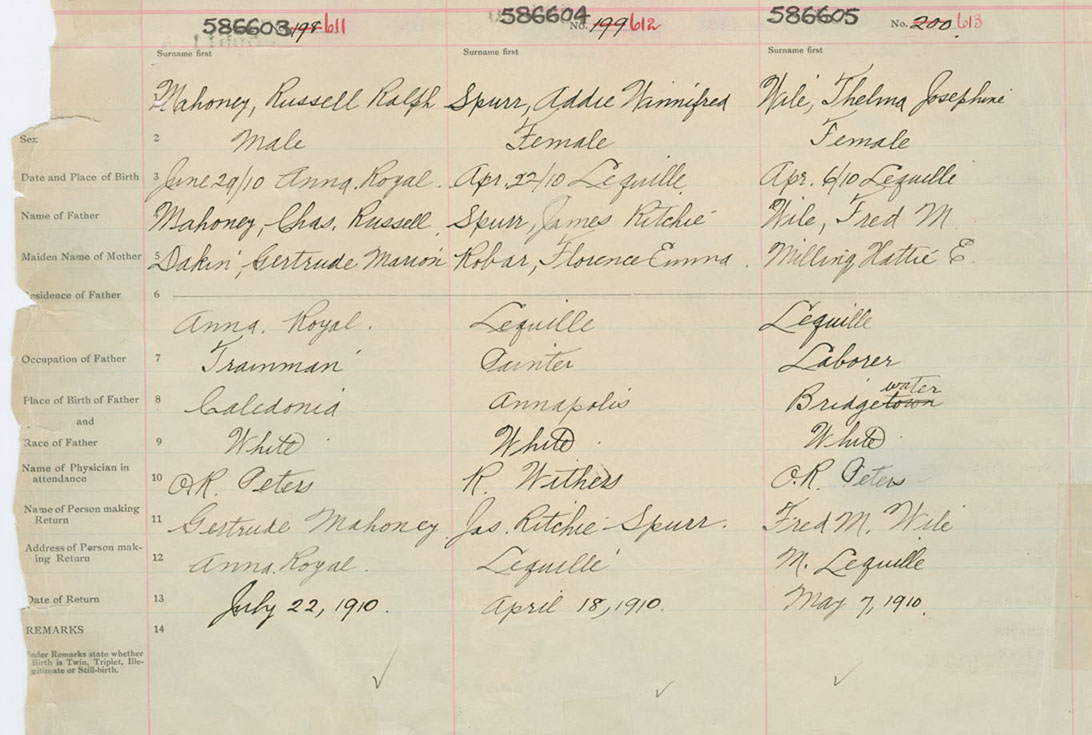 586603 No. 198 611 586604 No. 199 612 586605 No. 200. 613
Surname first Surname first Surname first
1 Mahoney, Russell Ralph Spurr, Addie Winnifred Wile, Thelma Josephine
Sex 2 Male Female Female
Date and Place of Birth 3 June 29/10 Anna. Royal. Apr 22/10 Lequille Apr. 6/10 Lequille
Name of Father Mahoney, Chas. Russell Spurr, James Ritchie Wile, Fred M.
Maiden Name of Mother 5 Dakin Gertrude Marion Robar, Florence Emma. Milling Hattie E.
esidence of Father 6
Anna. Royal. Lequille Lequille
Occupation of Father 7 Trainman Painter Laborer
water
Place of Birth of Father 8 Caledonia Annapolis Bridgetown
and
Race of Father 9 White White White
Name of Physician in
attendance 10 O.R. Peters R. Withers O.R. Peters
Name of Person making
Return 11 Gertrude Mahoney. Jas. Ritchie Spurr. Fred M. Wile
Address of Person mak-
ing Return 12 Anna. Royal. Lequille M. Lequille
Date of Return 13 July 22, 1910. April 18, 1910. May 7, 1910.
REMARKS 14
nder Remarks state whether
Birth is Twin, Triplet, Ille-
gitimate or Still-birth.